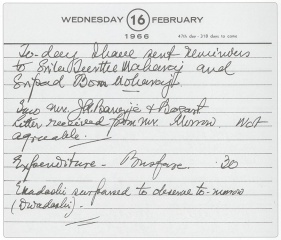 WEDNESDAY 16 FEBRUARY
1966
47th day - 318 days to come
To-day I have sent reminders
to Srila Teertha Maharaj and
Sripad Bon Maharaj.
Two Mr. J. Banerjee &
letter received from Mr. Morrow. Not
agreeable.
Expenditure - Busfare. 30
Ekadashi surpassed to observe to-morrow
(Dwadashi).-